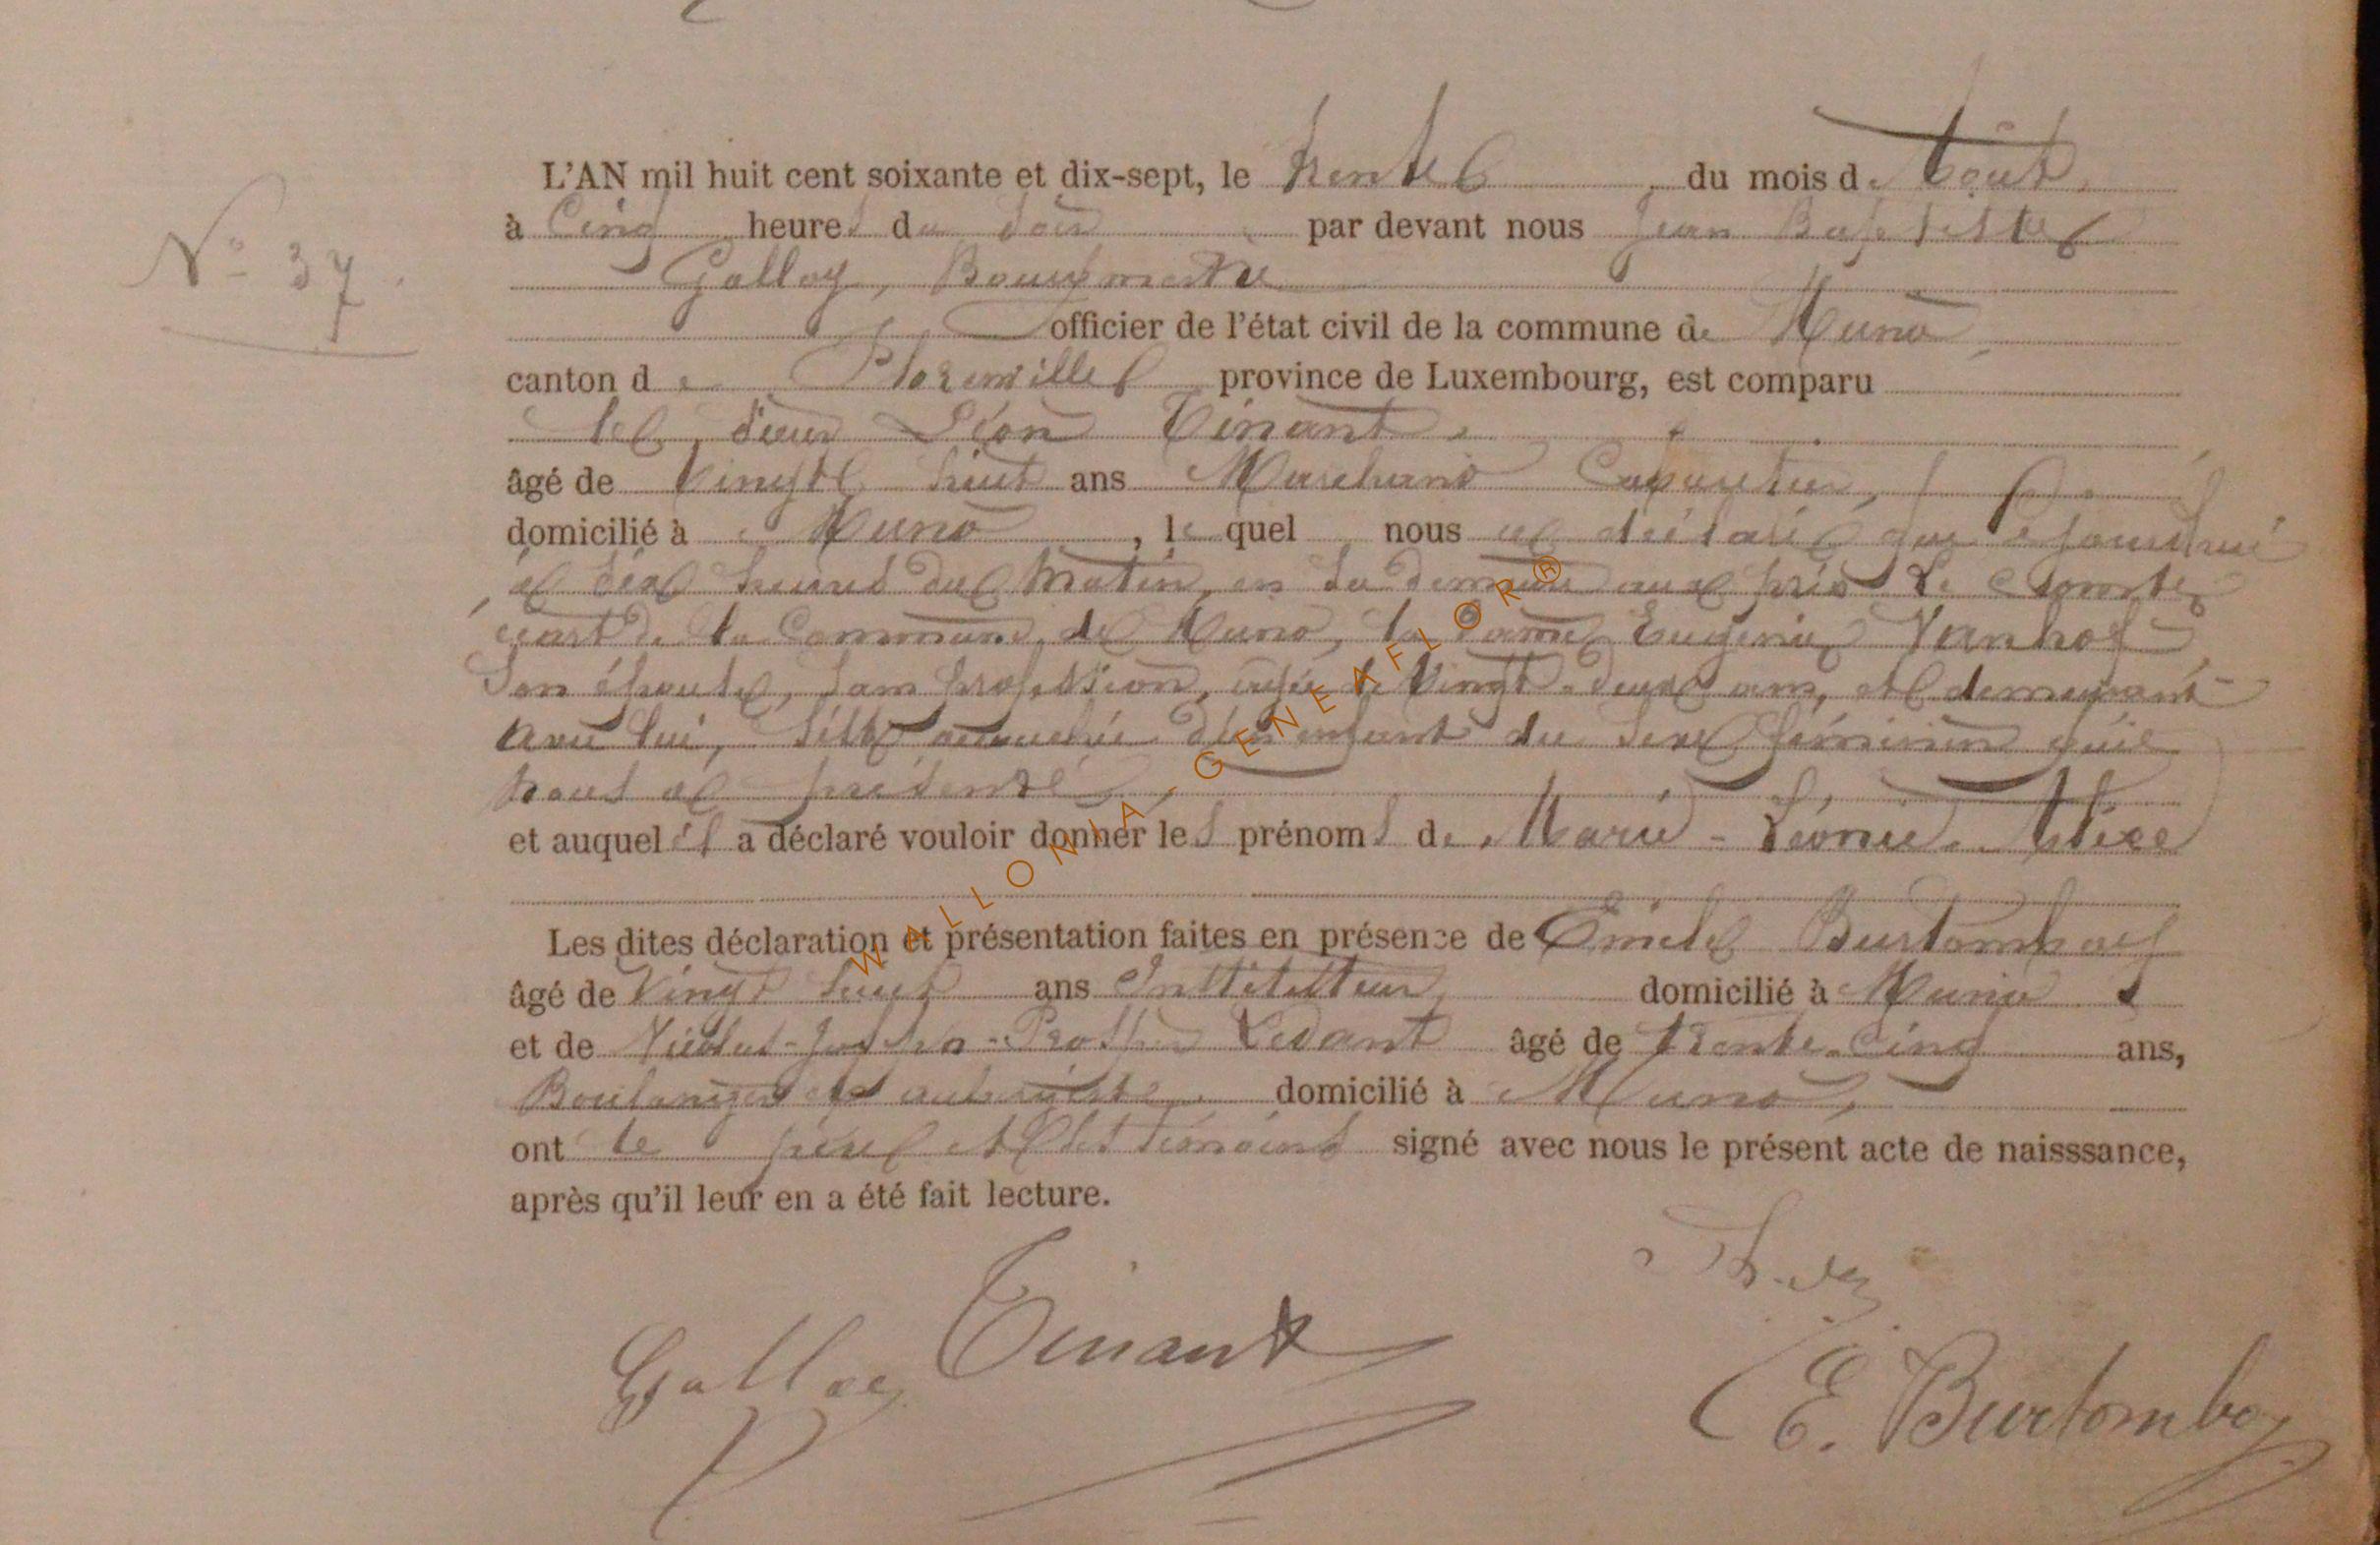 L'AN mil huit cent soixante et dix-sept, le trente du mois de Août,
N° 37.
à Cinq heures du soir par devant nous Jean Baptiste
Galloy, Bourgmestre
officier de l'état civil de la commune de Muno,
canton de Florenville province de Luxembourg, est comparu
le sieur Léon Tinant,
âgé de Vingt huit ans Marchand
domicilié à Muno, lequel nous a déclaré que aujourd'hui
à heures du matin, en sa demeure
écart de la Commune de Muno, la dame Eugénie Vanhof
son épouse, sans profession, âgée de Vingt-deux ans, et demeurant
avec lui, s'est accouchée d'un enfant du sexe féminin qu'il
nous a présenté
et auquel il a déclaré vouloir donner les prénoms de Marie-Léonie-
Les dites déclaration et présentation faites en présence de Emile Burtomboy
âgé de Vingt huit ans Instituteur, domicilié à Muno
et de Nicolas-Joseph-Prosper Ledant âgé de trente-cinq ans,
Boulanger et aubergiste, domicilié à Muno,
ont le père et les témoins signé avec nous le présent acte de naisssance,
après qu'il leur en a été fait lecture.
Galloy Tinant
E. Burtomboy
WALLONIA - GENEAFLOR®